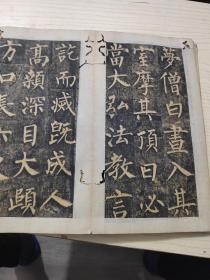 夢僧白晝入其
室摩其頂曰必
當大弘法教言
訖而滅既成人
高顙深目大頤
方口長六尺